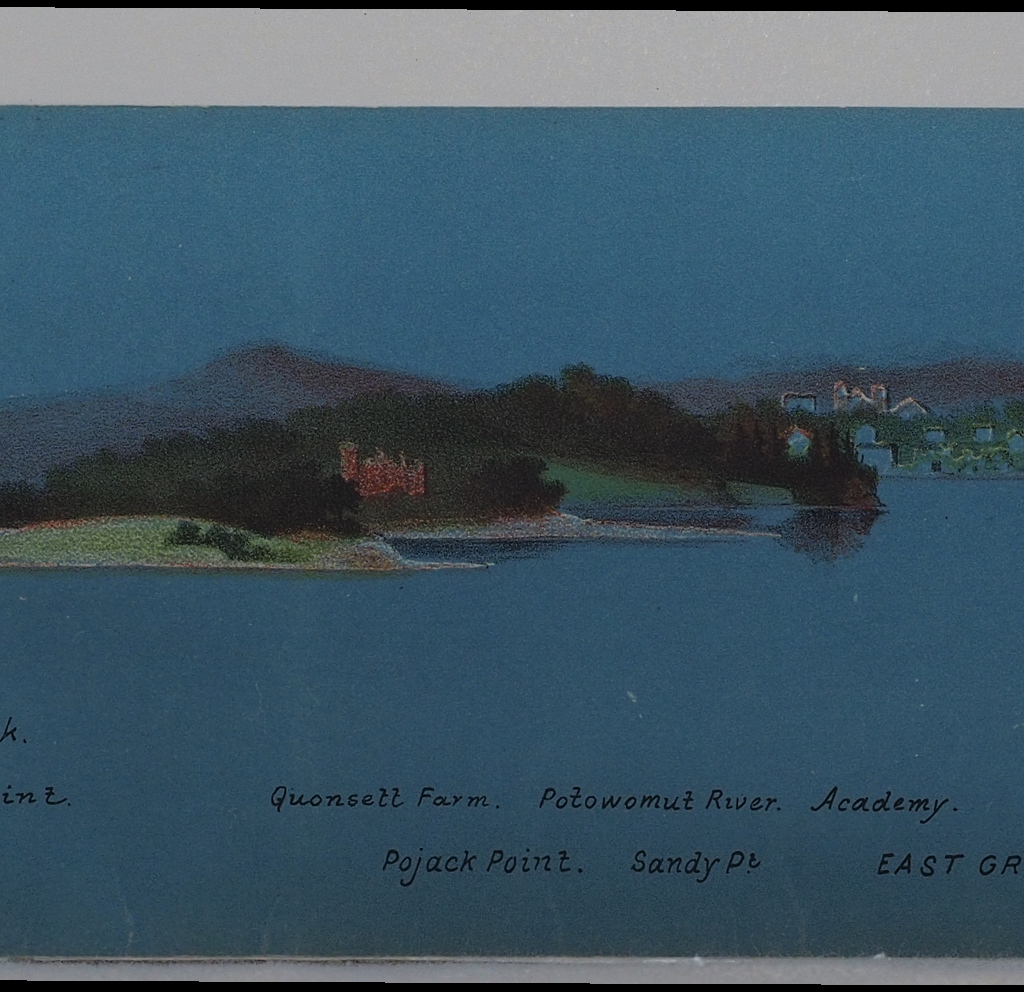 k.
int. Quonsett Farm. Potowomut River. Academy.
Pojack Point. Sandy Pt EAST GR